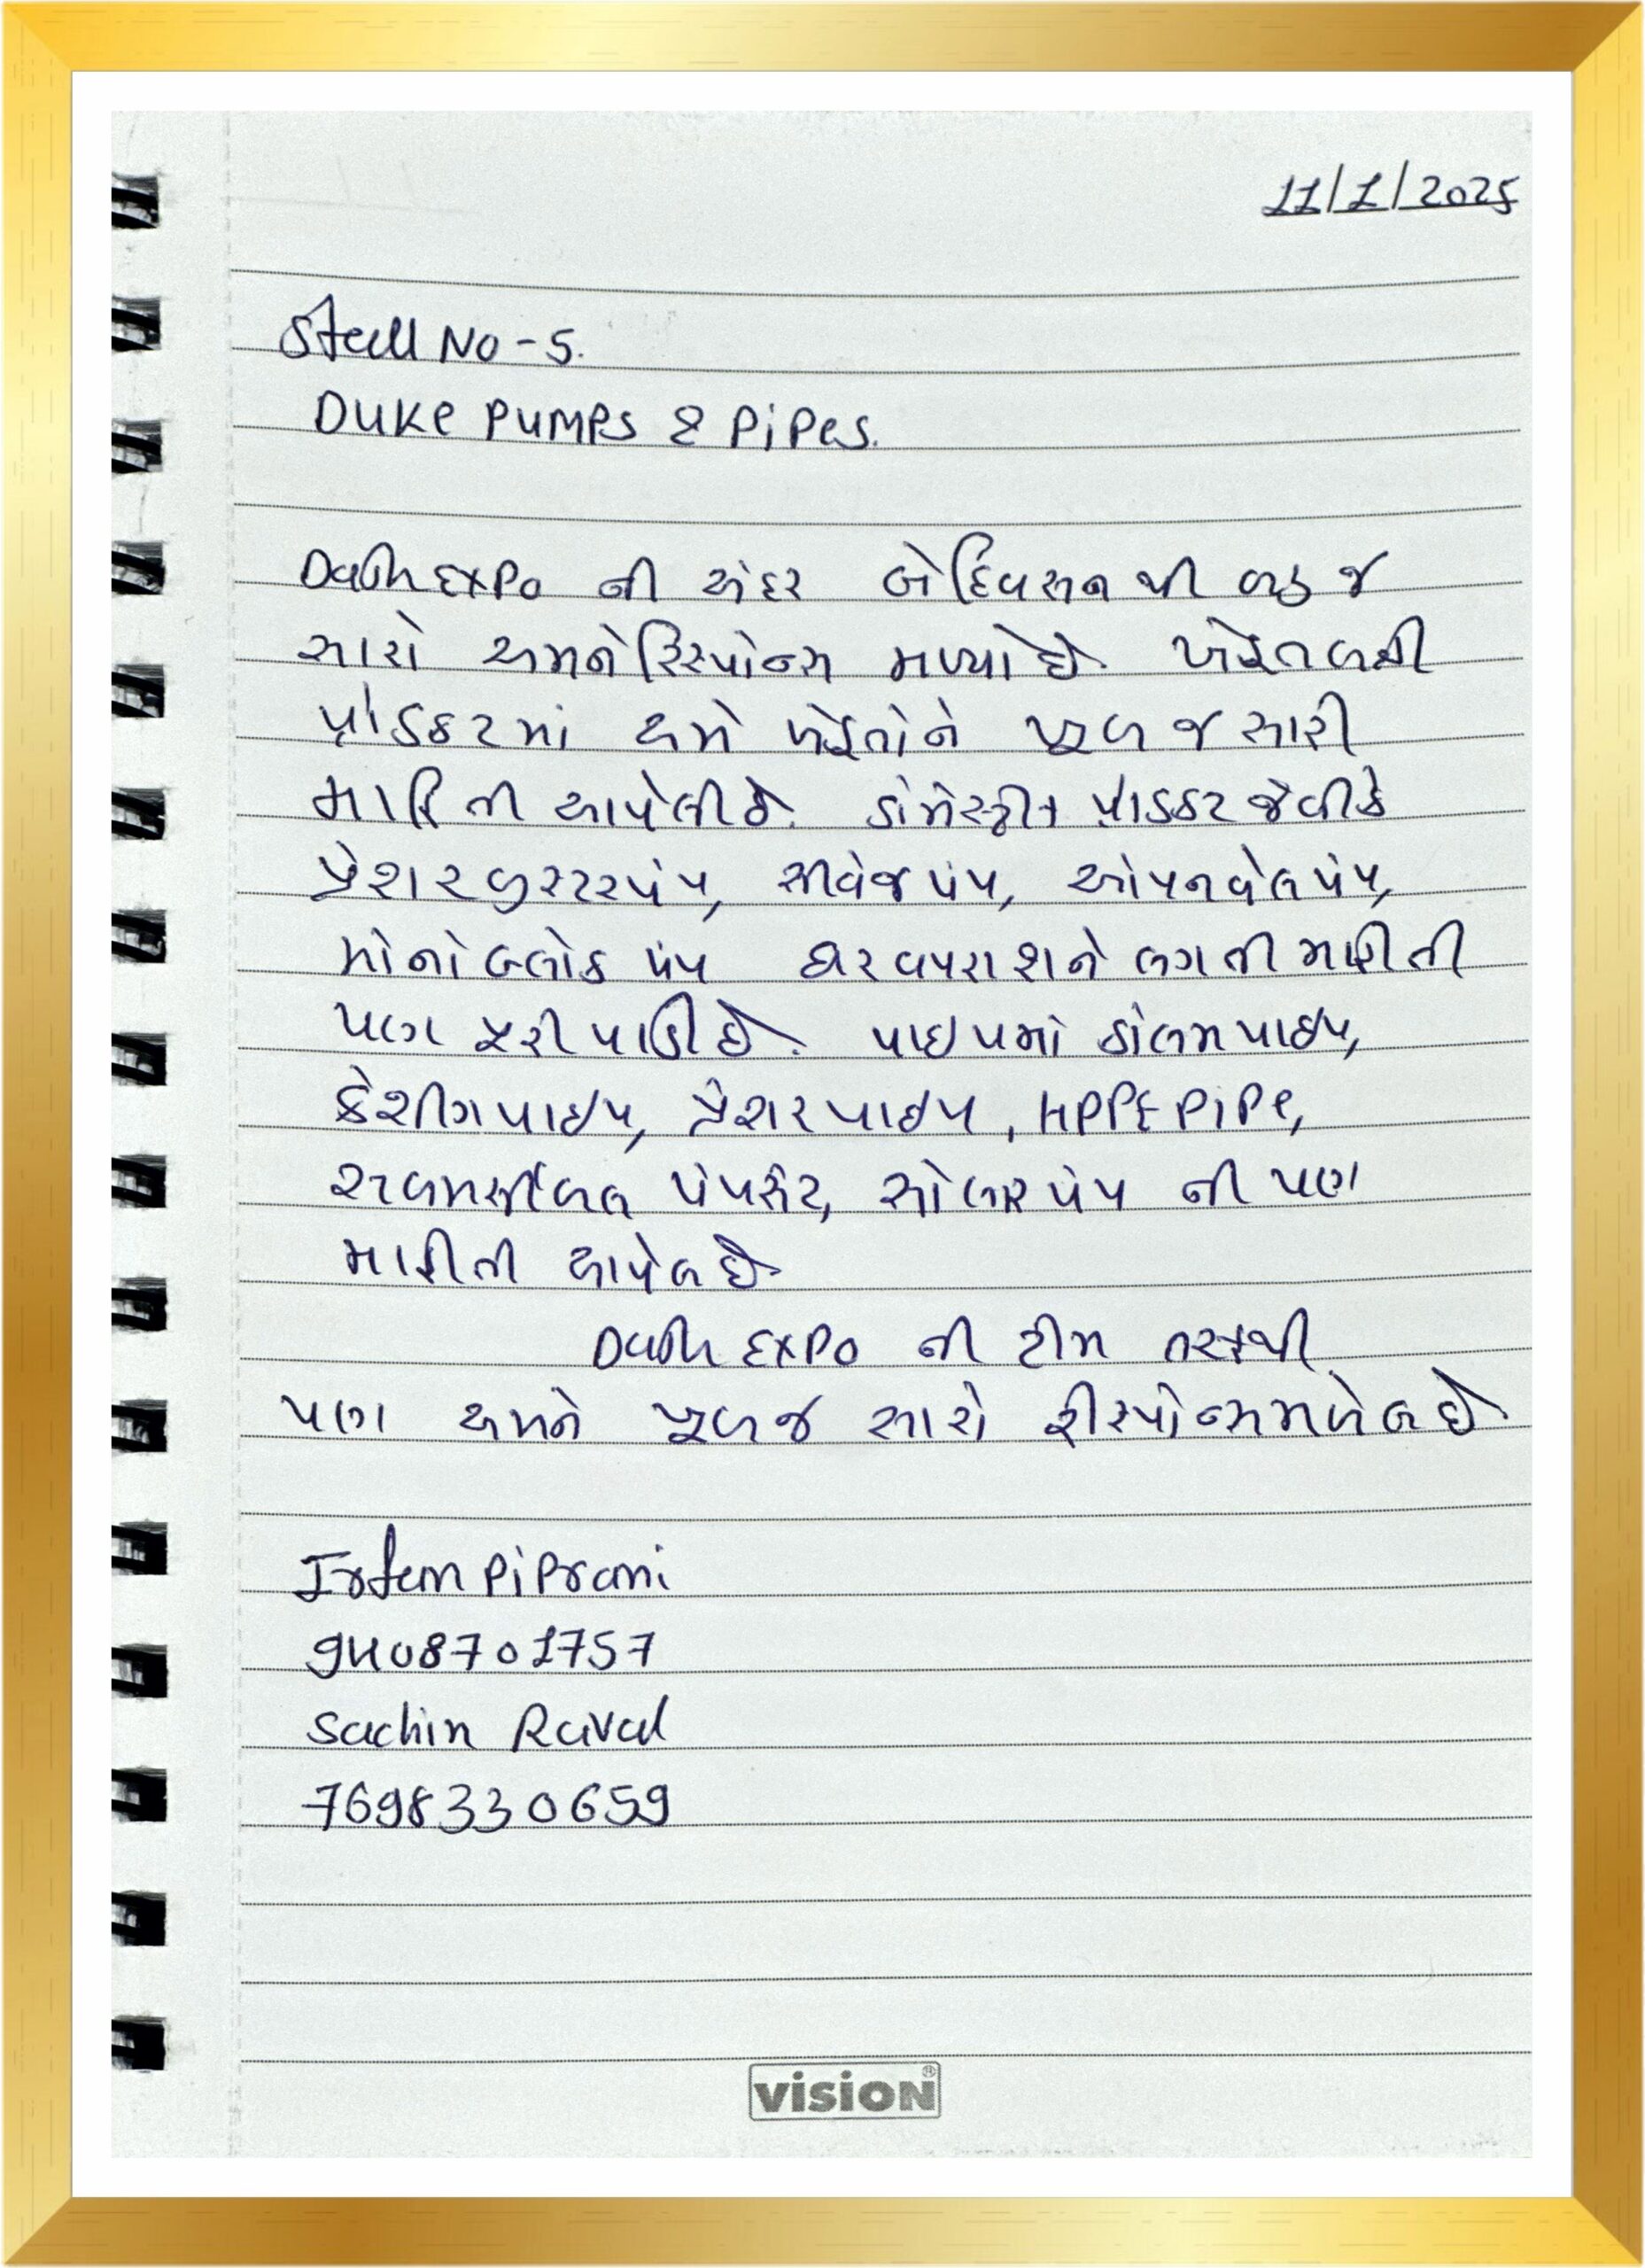 11/1/2025
Stall No - 5.
Duke Pumps & Pipes.
Expo ની અંદર બે દિવસન થી બહુ જ
સારો અમને રિસ્પોન્સ મળ્યો છે. ખેડૂત લક્ષી
પ્રોડક્ટમાં અમે ખેડૂતોને ખૂબ જ સારી
માહિતી આપેલી છે. ડોમેસ્ટીક પ્રોડક્ટ જેવી કે
પ્રેશર બુસ્ટર પંપ, સીવેજ પંપ, ઓપનવેલ પંપ,
મોનોબ્લોક પંપ ઘર વપરાશને લગતી માહીતી
પણ પૂરી પાડી છે. પાઇપમાં કોલમ પાઇપ,
કેશીંગ પાઇપ, પ્રેશર પાઇપ, HDPE Pipe,
સબમર્સીબલ પંપસેટ, સોલાર પંપ ની પણ
માહીતી આપેલ છે.
Expo ની ટીમ તરફથી
પણ અમને ખૂબજ સારો રીસ્પોન્સ મળેલ છે.
Irfan Piprani
9408701757
Sachin Raval
7698330659
VISION®